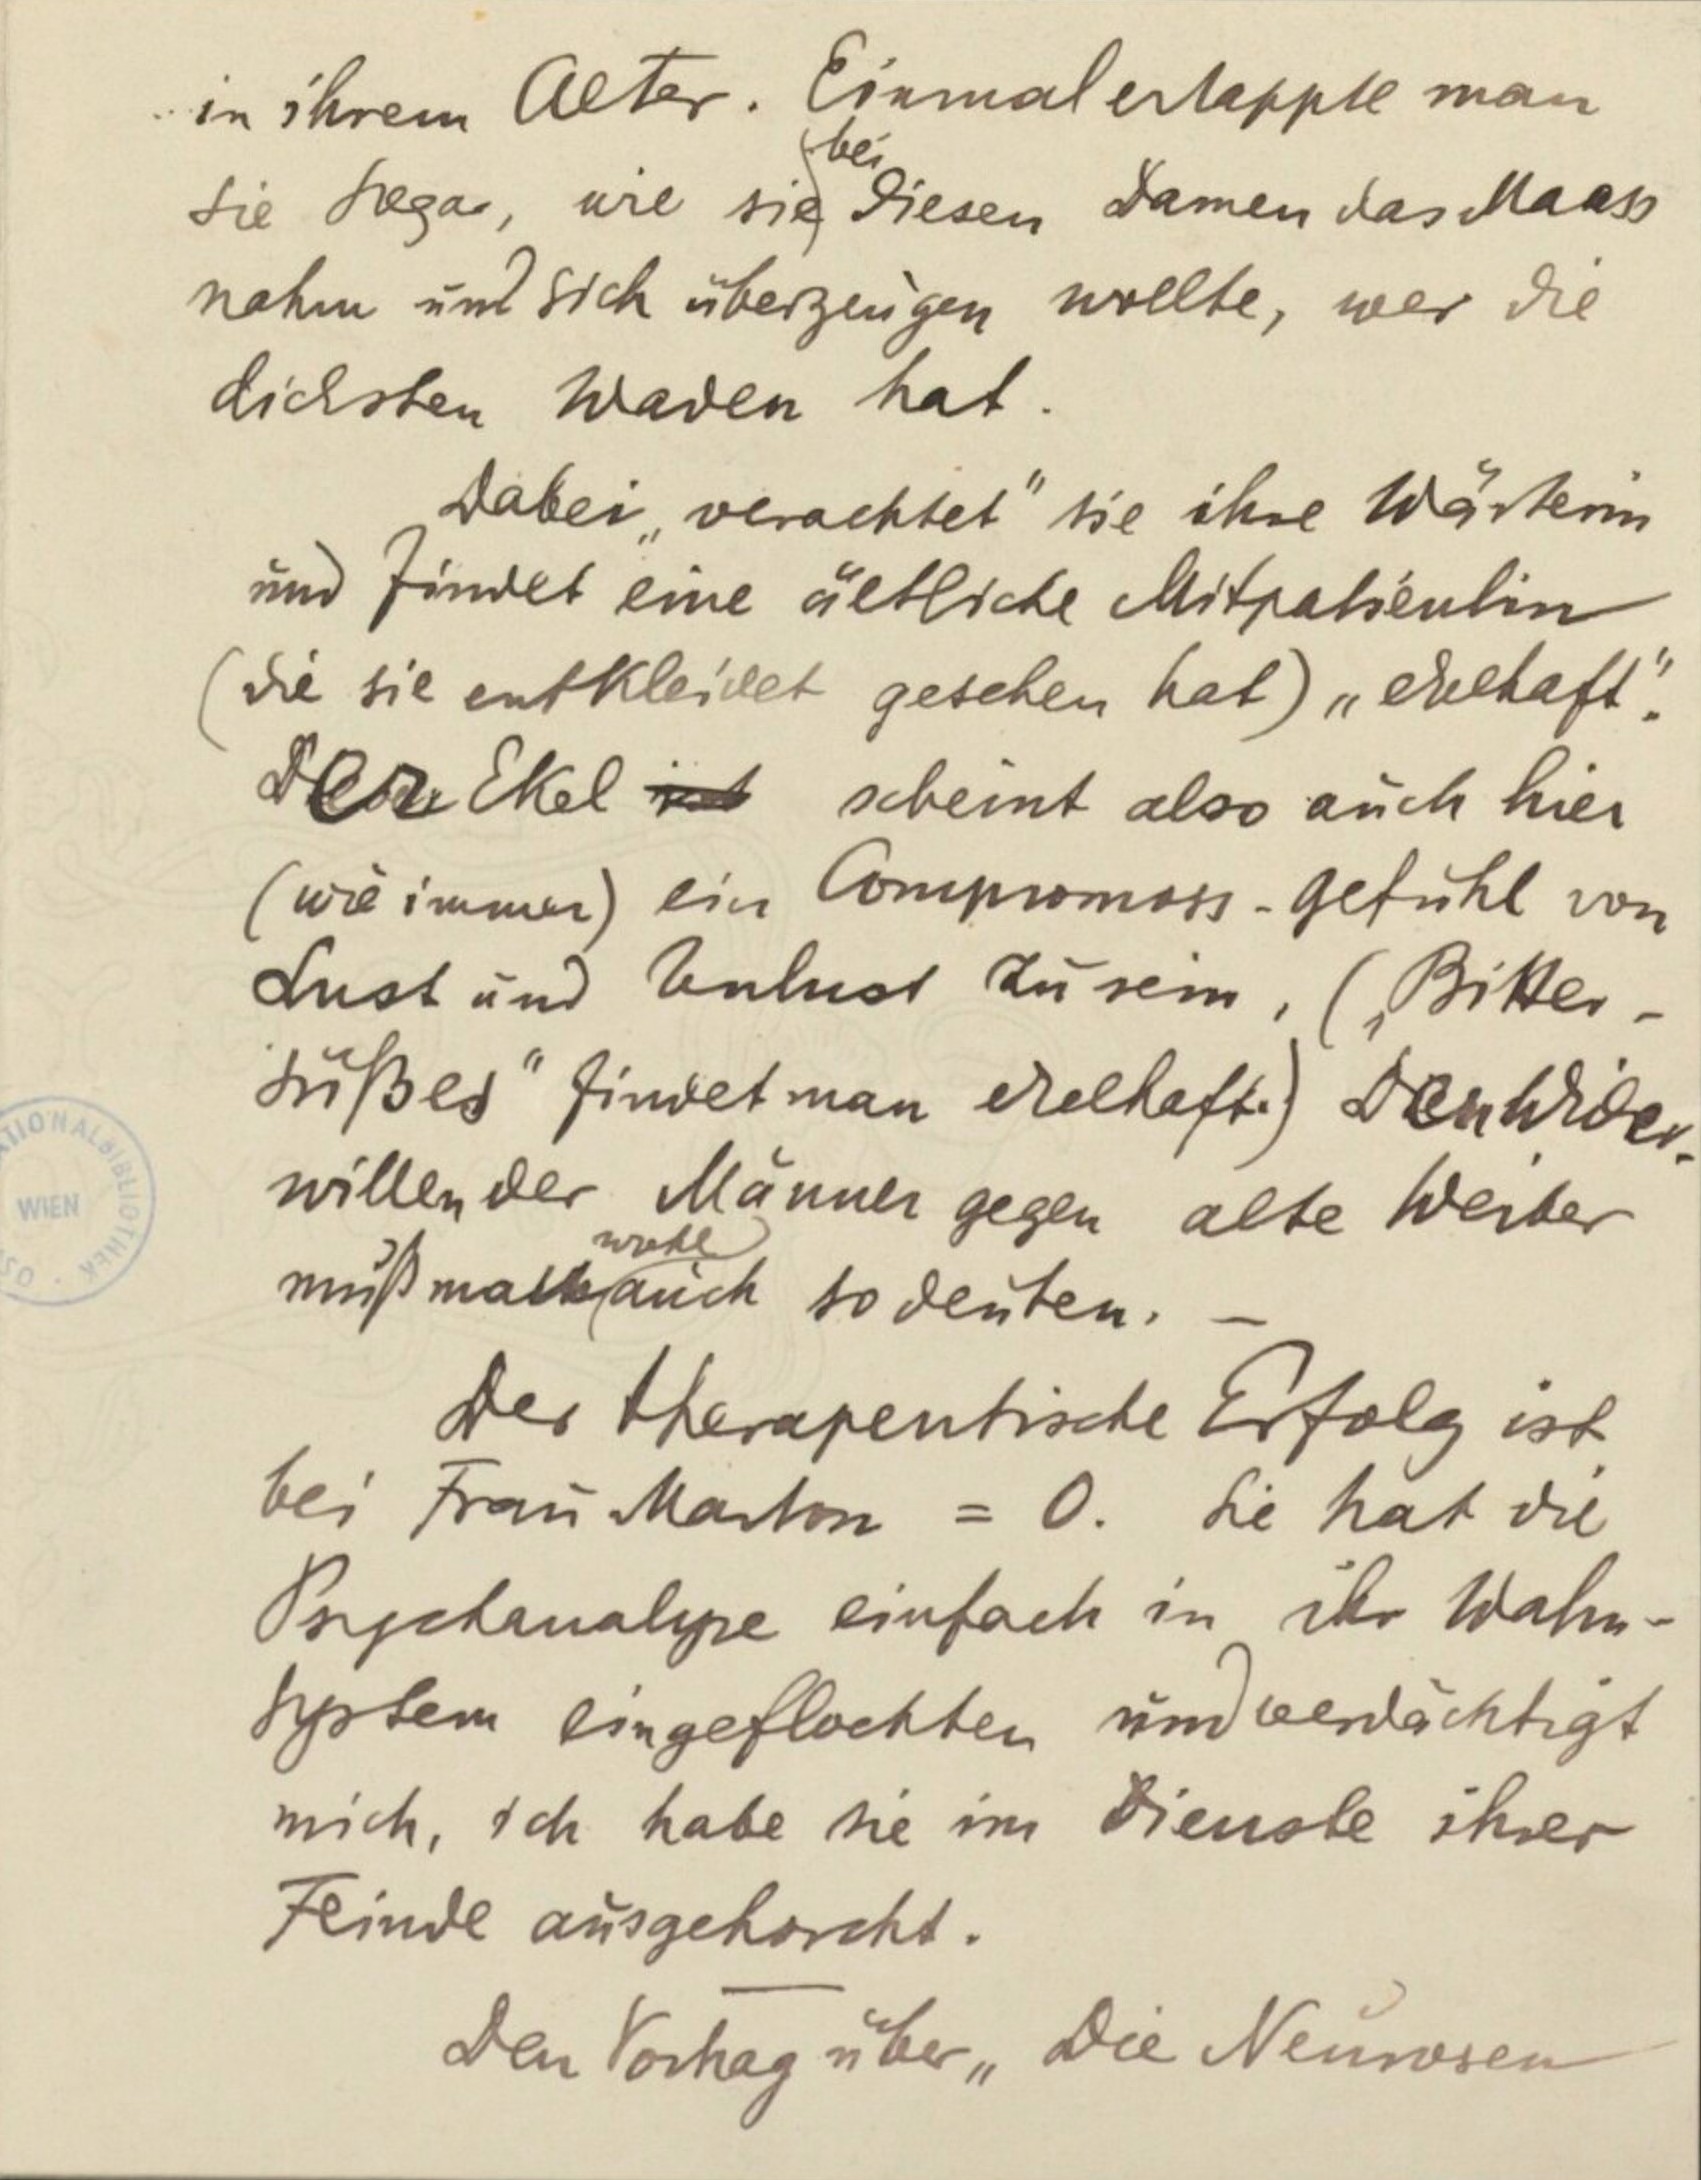 in ihrem Alter. Einmal ertappte man
bei
sie sogar, wie sie diesen Damen das Maass
nahm und sich überzeugen wollte, wer die
dicksten Waden hat.
Dabei „verachtet" sie ihre Wärterin
und findet eine ältliche Mitpatientin
(die sie entkleidet gesehen hat) „ekelhaft".
Der Ekel ist scheint also auch hier
(wie immer) ein Compromiss-gefühl von
Lust und Unlust zu sein, („Bitter-
süßes" findet man ekelhaft.) Den Wider-
willen der Männer gegen alte Weiber
wohl
muß man auch so deuten. –
Der therapeutische Erfolg ist
bei Frau Marton = 0. Sie hat die
Psychanalyse einfach in ihr Wahn-
system eingeflochten und verdächtigt
mich, ich habe sie im Dienste ihrer
Feinde ausgehorcht.
Den Vortrag über „Die Neurosen
NATIONALBIBLIOTHEK
WIEN